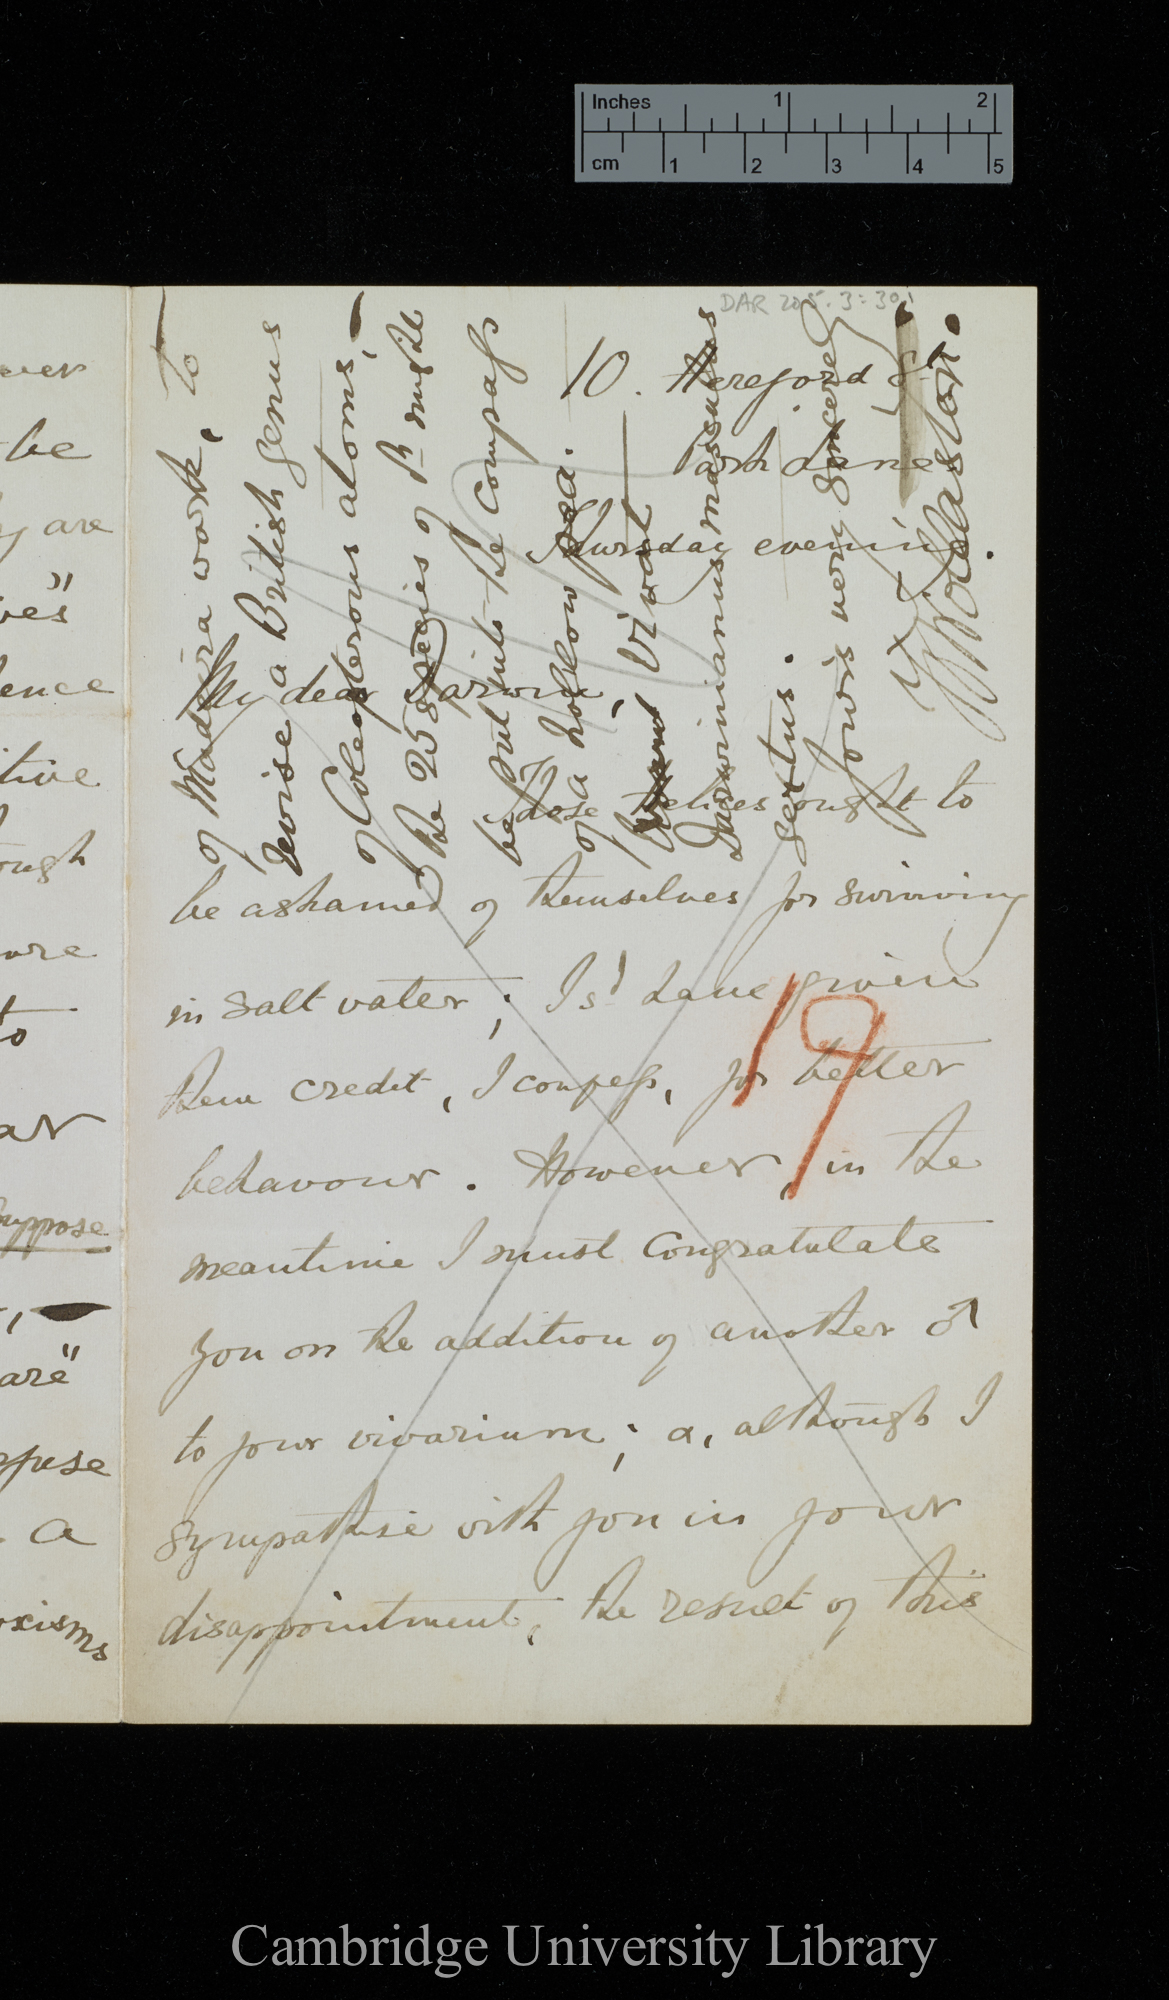 Inches 1 2
cm 1 2 3 4 5
DAR 205.3: 301
10. Hereford St
Park Lane
Thursday evening.
My dear Darwin,
Those Helices ought to
be ashamed of themselves for swimming
in salt water; I sd. have given
them credit, I confess, for better
behaviour. However, in the
meantime I must congratulate
you on the addition of another ♂
to your vivarium; &, although I
sympathise with you in your
disappointment, the result of this
19
of Madeira work, — to
revise a British genus
of Coleopterous atoms, —
the 25 species of wh. might
be put into the compass
of a hollow pea.
Vivat
Darwinianus masculus
sextus.
Yours very sincerely
T V Wollaston.
ever
be
y are
ves"
ence
tive
ough
ure
to
ar
suppose
are"
a
oxisms
Cambridge University Library